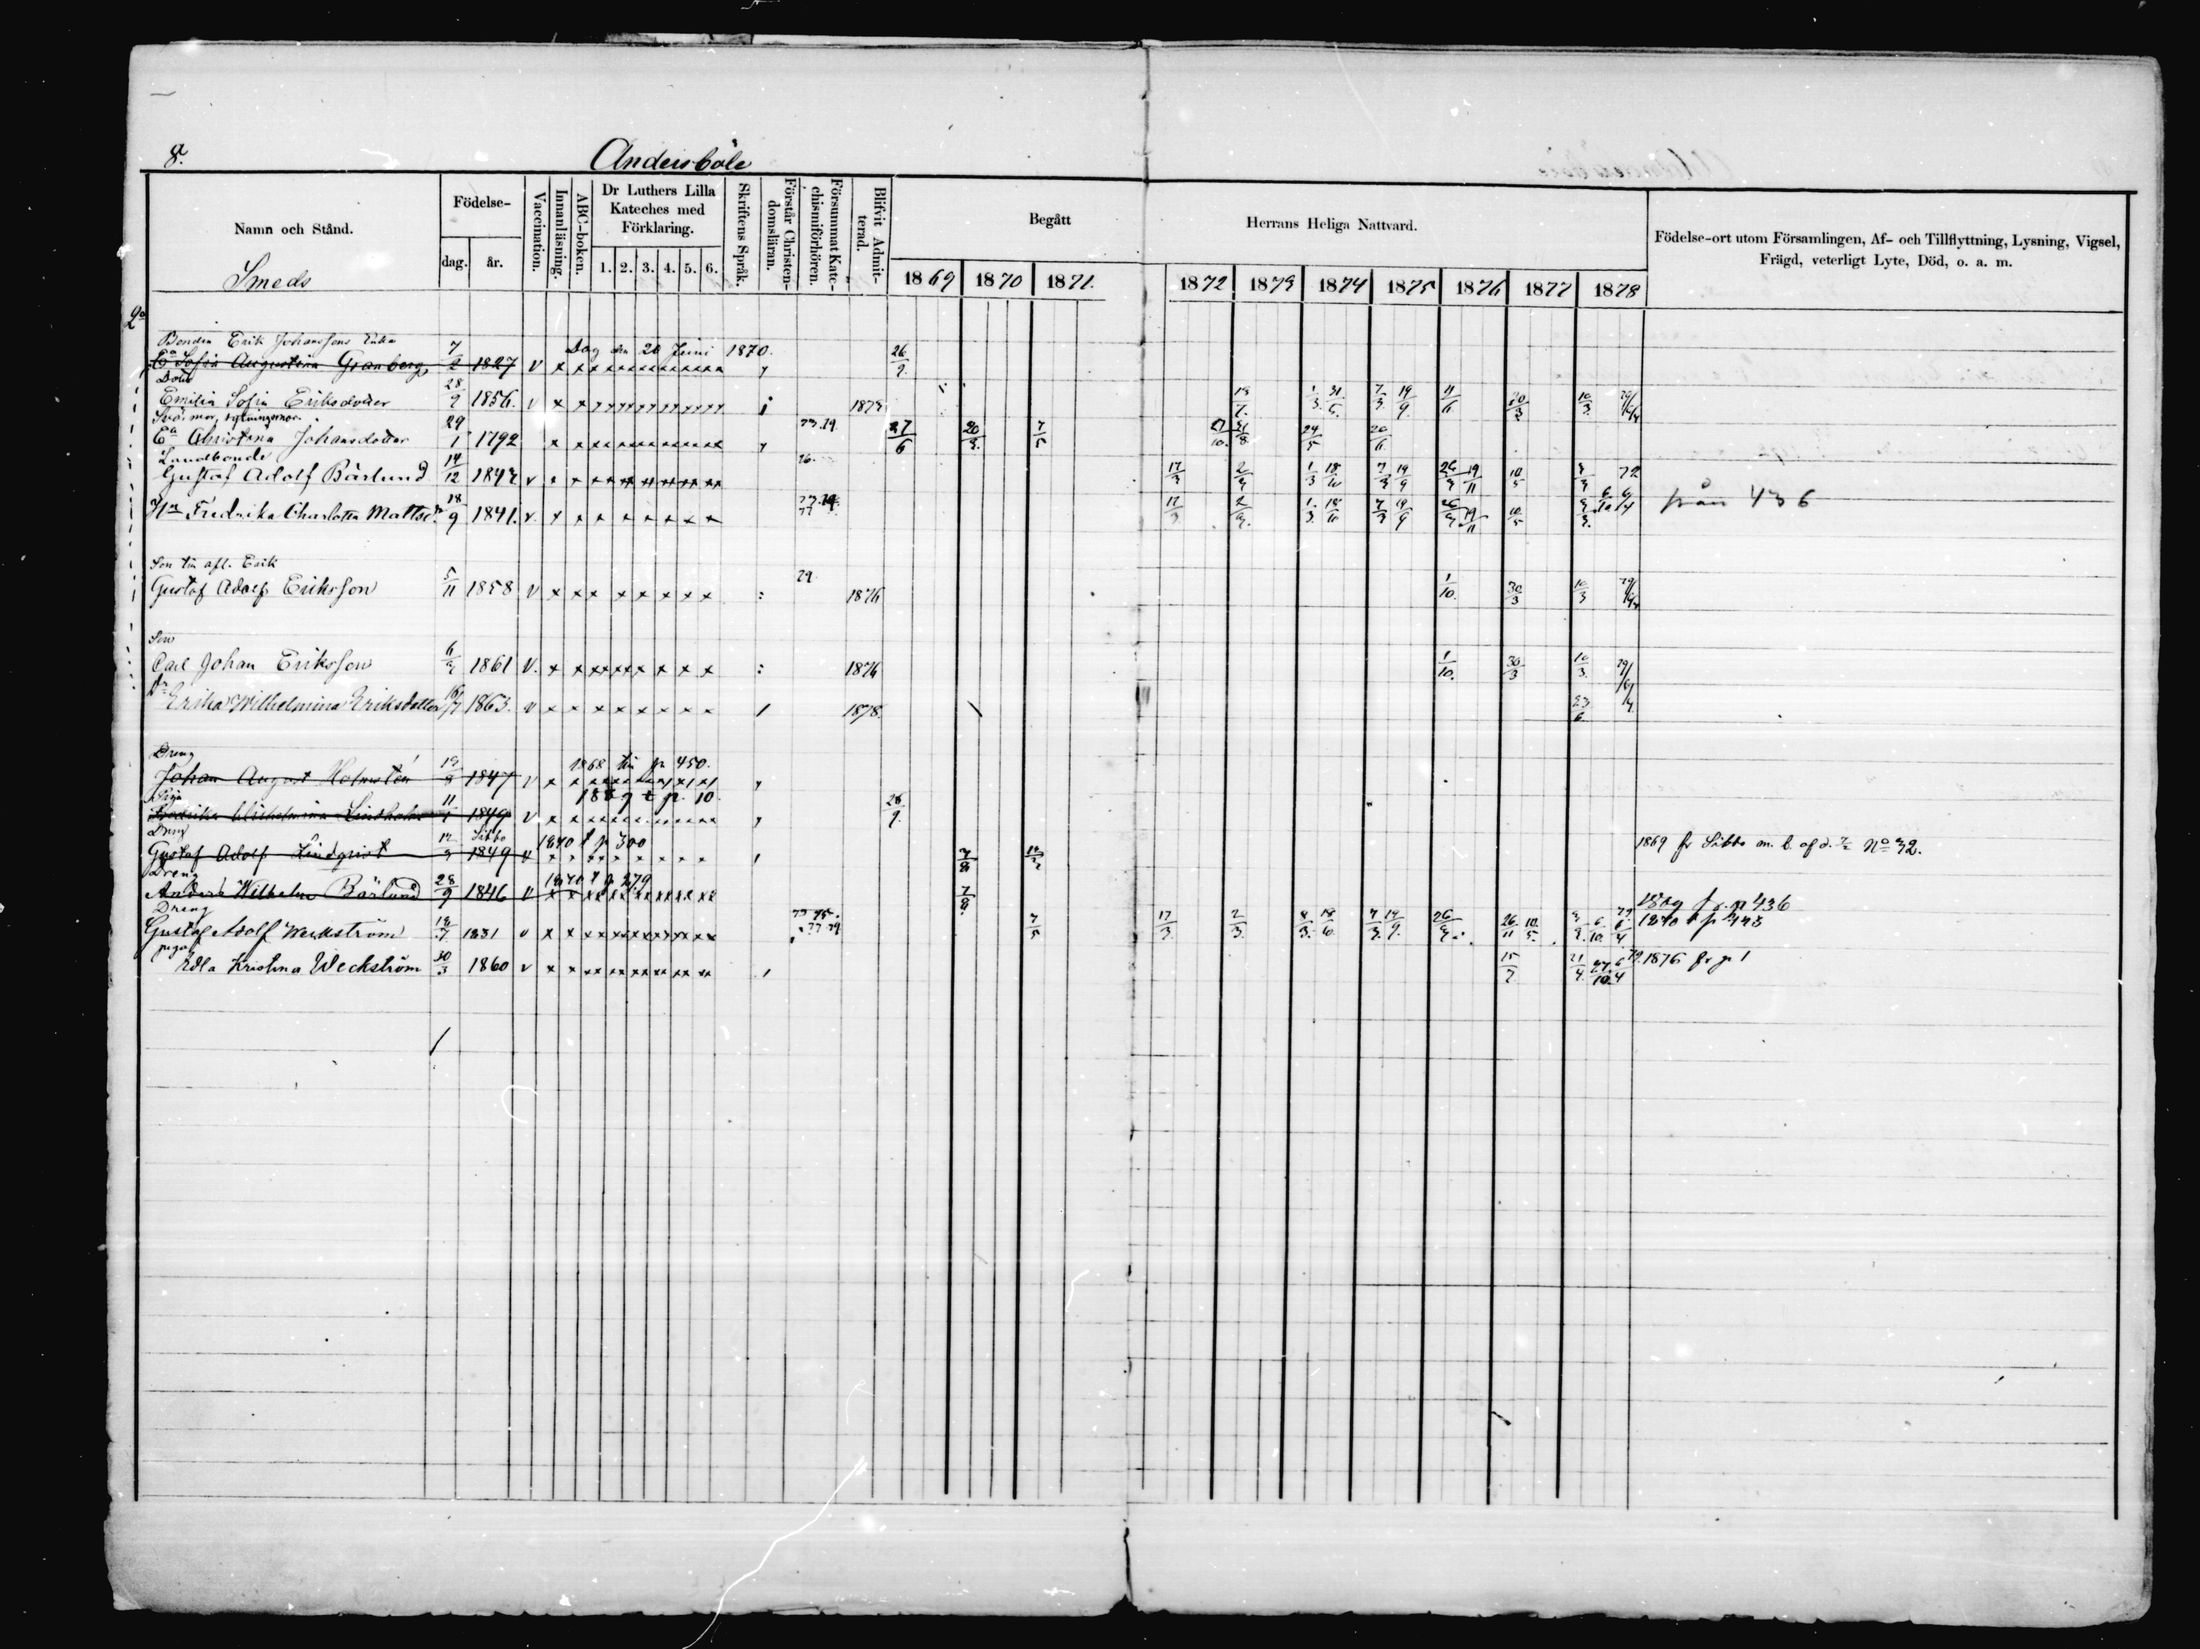 8.
Andersböle
Namn och Stånd.
Födelse-
dag. år.
Vaccination.
Innanläsning.
ABC-boken.
Dr Luthers Lilla Kateches med Förklaring.
1. 2. 3. 4. 5. 6.
Skriftens Språk.
Förstår Christen-domsläran.
Försummat Kate-chismiförhören.
Blifvit Admit-terad.
Begått Herrans Heliga Nattvard.
1869 1870 1871. 1872 1873 1874 1875 1876 1877 1878
Födelse-ort utom Församlingen, Af- och Tillflyttning, Lysning, Vigsel,
Frägd, veterligt Lyte, Död, o. a. m.
Smeds
Bonden Erik Johanssons Enka
Ea Sofia Augustina Granberg 7/2 1827 v Dog den 20 Juni 1870. 26/9
Dotter
Emilia Sofia Eriksdotter 28/9 1856. v 1873
Ea Christina Johansdotter 29/1 1792 27/6 20/3 7/5
Landbonde
Gustaf Adolf Bärlund 14/12 1843 v 17/3 2/3 1/3 18/10 7/3 19/9 26/3 19/11 10/5
Fredrika Charlotta Matts 18/9 1841. v 17/3 2/3 1/3 18/10 7/3 19/9 26/3 19/11 10/5 från 436
Son till afl. Erik
Gustaf Adolf Eriksson 5/11 1858 v 79 1876 1/10. 30/3 10/3
Son
Carl Johan Eriksson 6/3 1861 v. 1876 1/10. 30/3 10/3
Dr Erika Wilhelmina Eriksdotter 16/7 1863. v 1878. 23/6
Dreng
Johan August Holmstén 19/9 1847 v 1868 till p 450.
Piga
Fredrika Wilhelmina Lindholm 11/1 1849 v 1869 t p. 10. 26/9
Dreng
Gustaf Adolf Lindqvist 1849 Sibbo 1870 t p 300 1869 fr Sibbo m. b. af d. No 32.
Dreng
Anders Wilhelm Bärlund 28/9 1846 v 1870 t p 279 7/8 1869 fr. p 436
Dreng
Gustaf Adolf Weckström 18/7 1831 v 7/5 17/3 2/3 7/3 19/9 26/3 26/11 10/5 1870 f p 443
piga
Edla Kristina Weckström 30/3 1860 v 15/7 21/4 27/10 6/4 1876 fr p 1